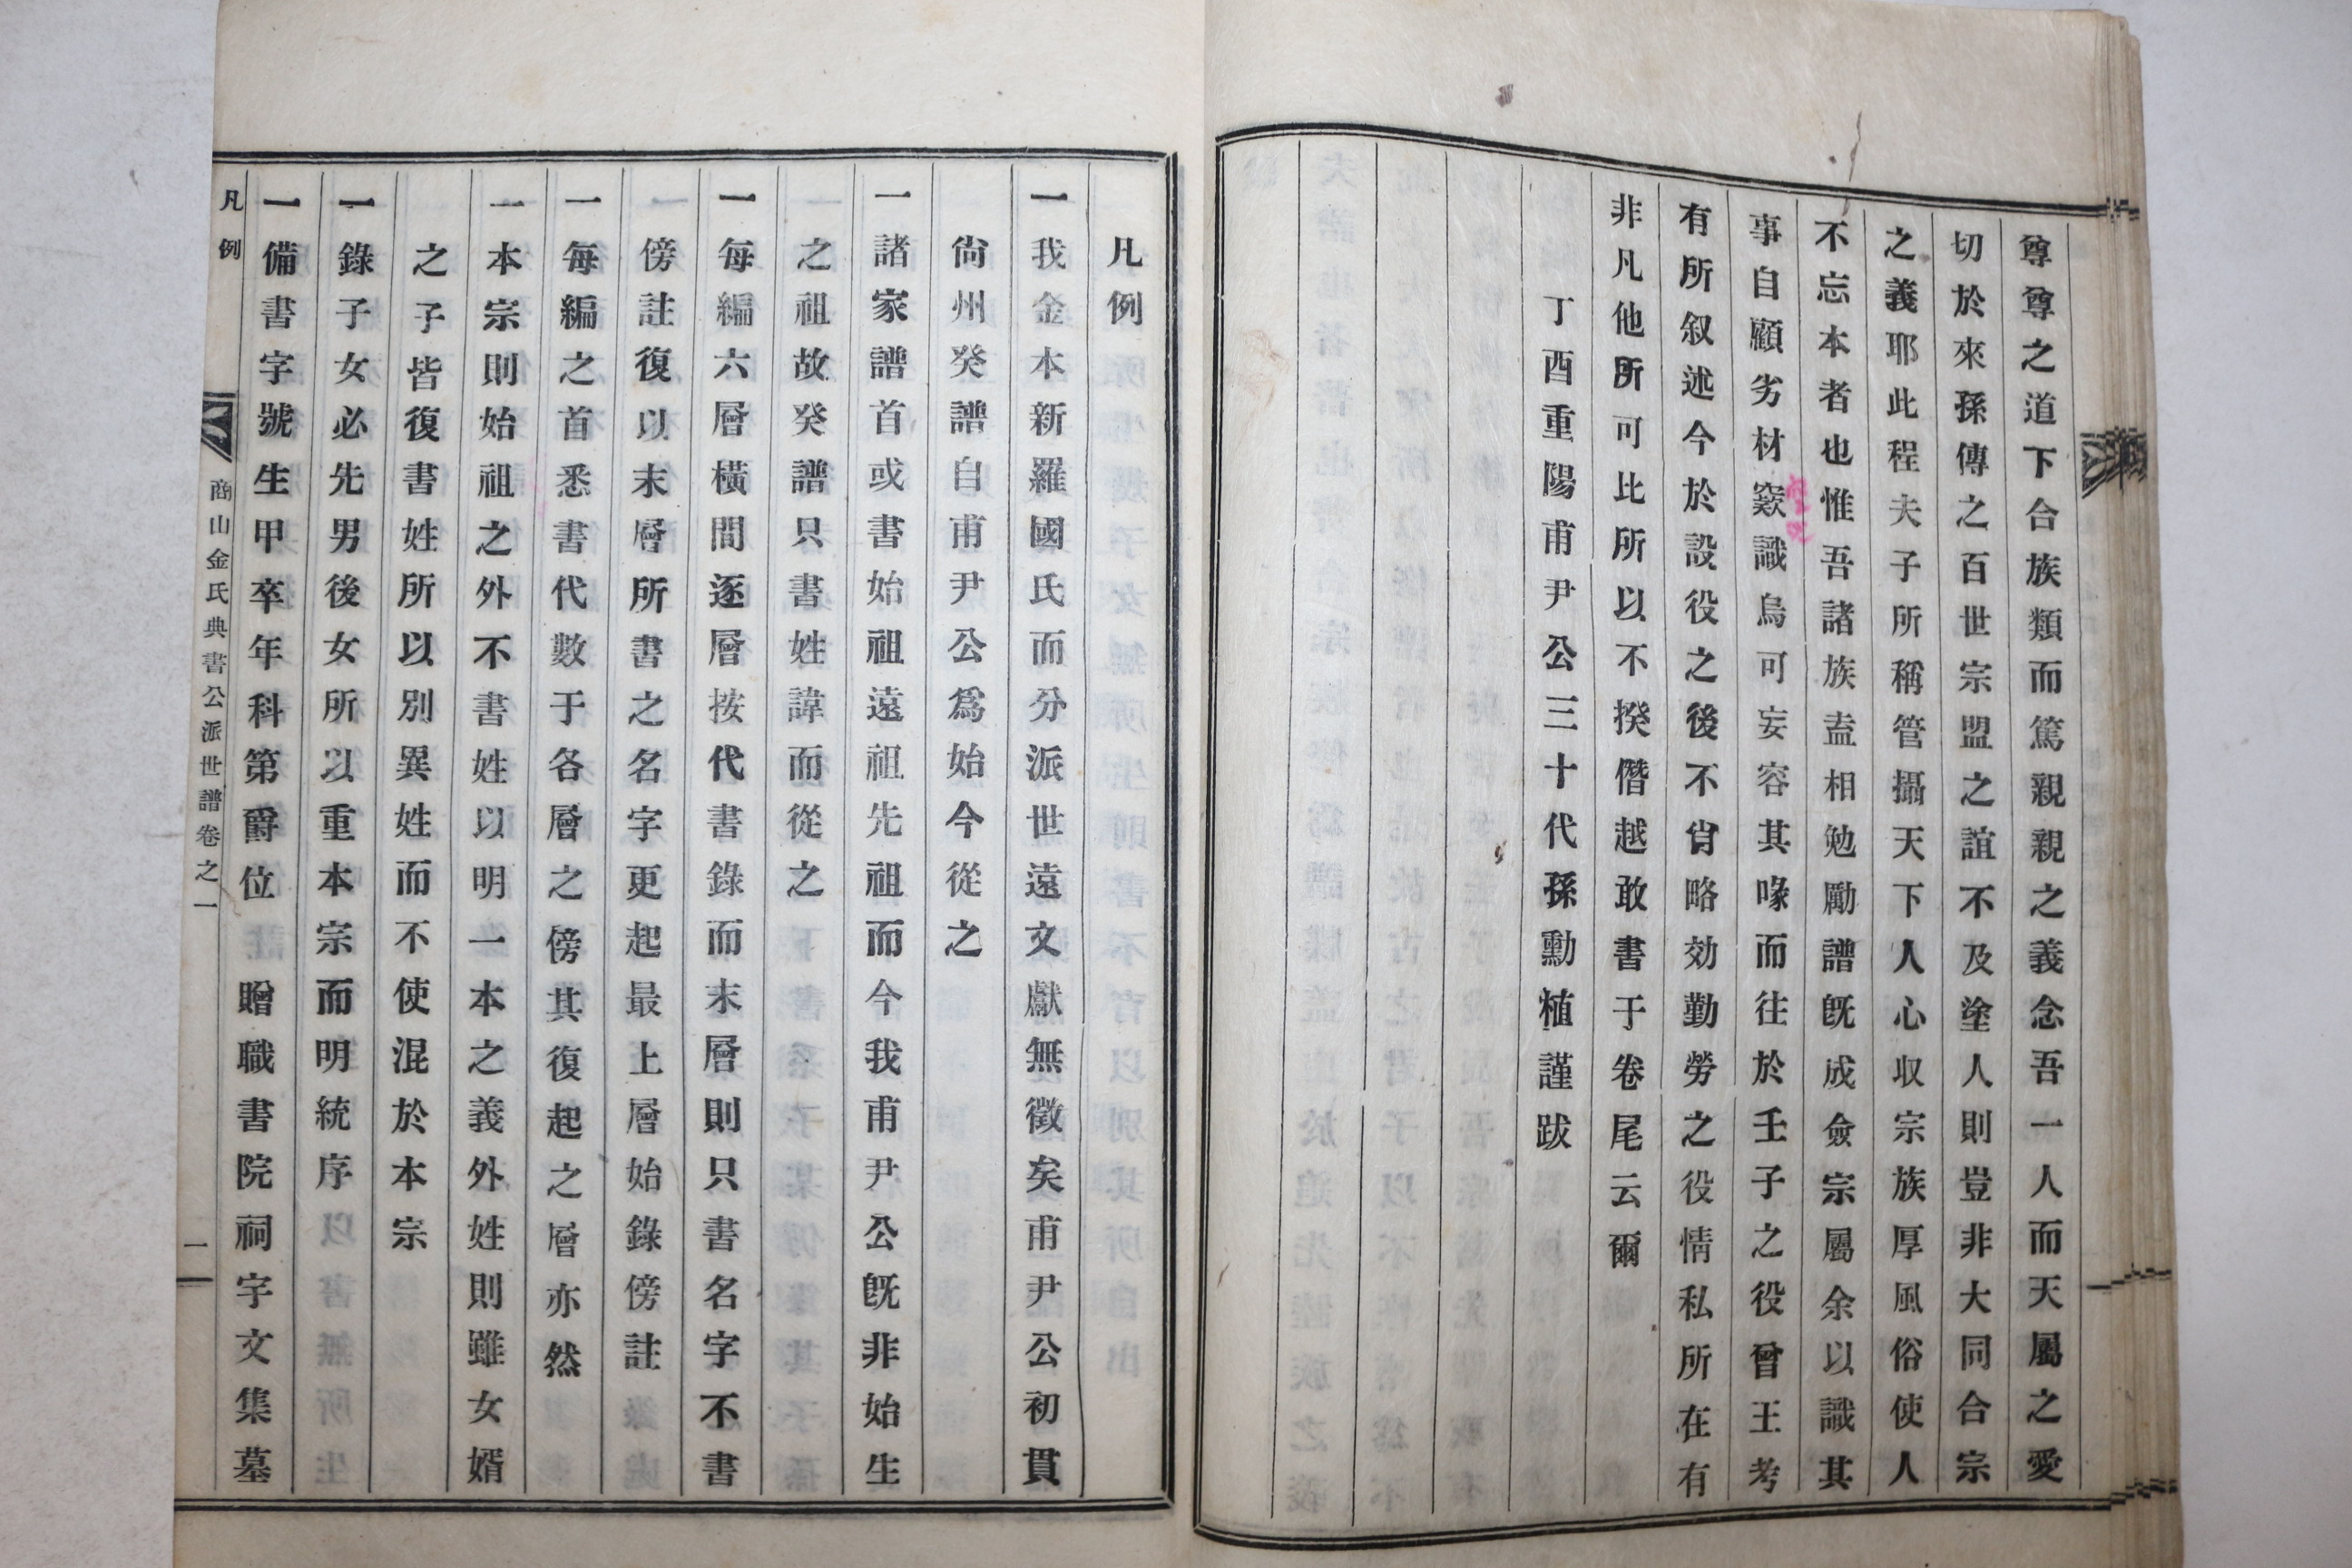 尊尊之道下合族類而篤親親之義念吾一人而天屬之愛
切於來孫傳之百世宗盟之誼不及塗人則豈非大同合宗
之義耶此程夫子所稱管攝天下人心収宗族厚風俗使人
不忘本者也惟吾諸族盍相勉勵譜旣成僉宗屬余以識其
事自顧劣材窾識烏可妄容其喙而往於壬子之役曾王考
有所叙述今於設役之後不肖略効勤勞之役情私所在有
非凡他所可比所以不揆僭越敢書于卷尾云爾
丁酉重陽甫尹公三十代孫勳植謹跋
凡例
一我金本新羅國氏而分派世遠文獻無徵矣甫尹公初貫
尙州癸譜自甫尹公爲始今從之
一諸家譜首或書始祖遠祖先祖而今我甫尹公旣非始生
之祖故癸譜只書姓諱而從之
一每編六層橫間逐層按代書錄而末層則只書名字不書
傍註復以末層所書之名字更起最上層始錄傍註
一每編之首悉書代數于各層之傍其復起之層亦然
一本宗則始祖之外不書姓以明一本之義外姓則雖女婿
之子皆復書姓所以別異姓而不使混於本宗
一錄子女必先男後女所以重本宗而明統序
一備書字號生甲卒年科第爵位 贈職書院祠宇文集墓
凡例
商山金氏典書公派世譜卷之一
一